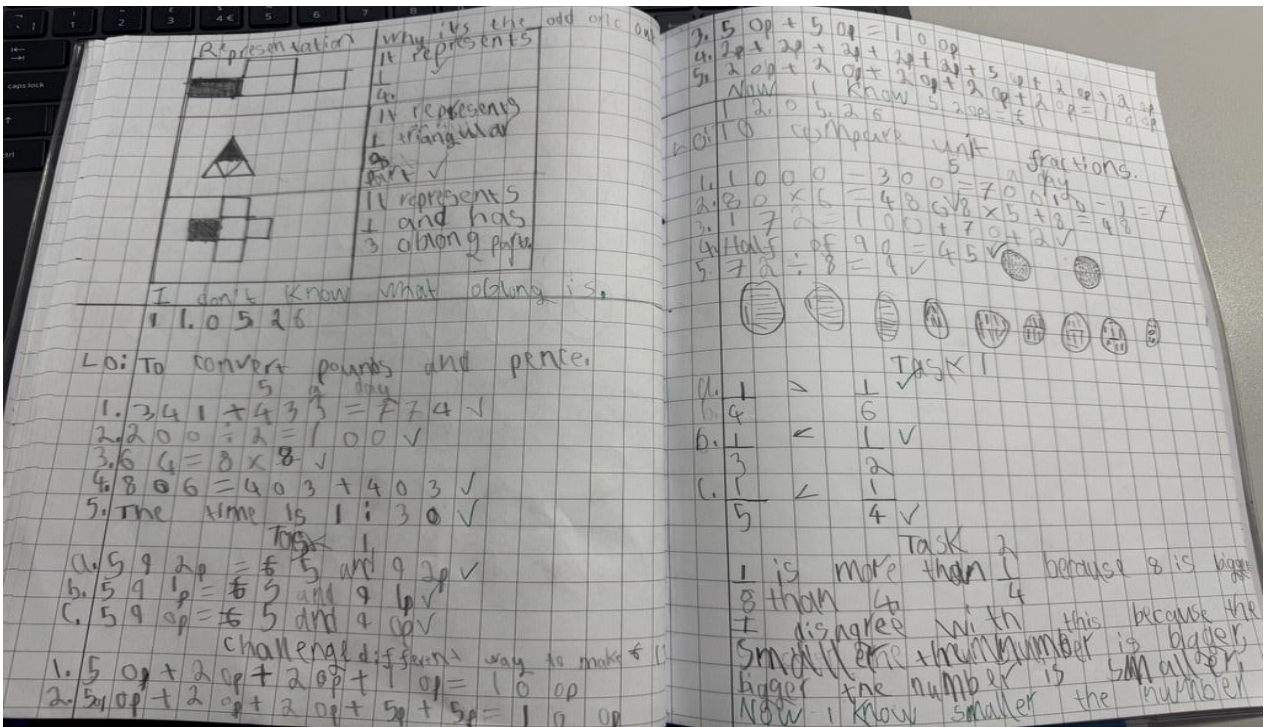 Representation
Why its the odd one out
It represents
1
4.
It represents
1 triangular
part ✓
It represents
1 and has
3 oblong parts
I don't know what oblong is.
11.05.26
LO: To convert pounds and pence.
5 a day
1. 341 + 433 = 774 ✓
2. 200 ÷ 2 = 100 ✓
3. 64 = 8 x 8 ✓
4. 806 = 403 + 403 ✓
5. The time is 1:30 ✓
Task 1
a. 592p = £5 and 92p ✓
b. 591p = £5 and 91p ✓
c. 590p = £5 and 90p ✓
Challenge different way to make £1
1. 50p + 20p + 20p + 10p = 100p
2. 50p + 20p + 20p + 5p + 5p = 100p
3. 50p + 50p = 100p
4. 2p + 2p + 2p + 2p + 2p + 5p + 20p +
5. 20p + 20p + 20p + 20p + 20p = 100p
Now I know 5 20p = £1
12.05.26
LO: To compare unit fractions.
5 a day
1. 1000 - 300 = 700 10 - 3 = 7
2. 80 x 6 = 480 ✓ 8 x 5 + 8 = 48
3. 172 = 100 + 70 + 2 ✓
4. Half of 90 = 45 ✓
5. 72 ÷ 8 = 9 ✓
Task 1
a. 1 > 1 ✓
4 6
b. 1 < 1 ✓
3 2
c. 1 < 1
5 4 ✓
Task 2
1 is more than 1 because 8 is bigger
8 than 4 4
I disagree with this because the
smaller the number is bigger,
bigger the number is smaller.
Now I know smaller the number